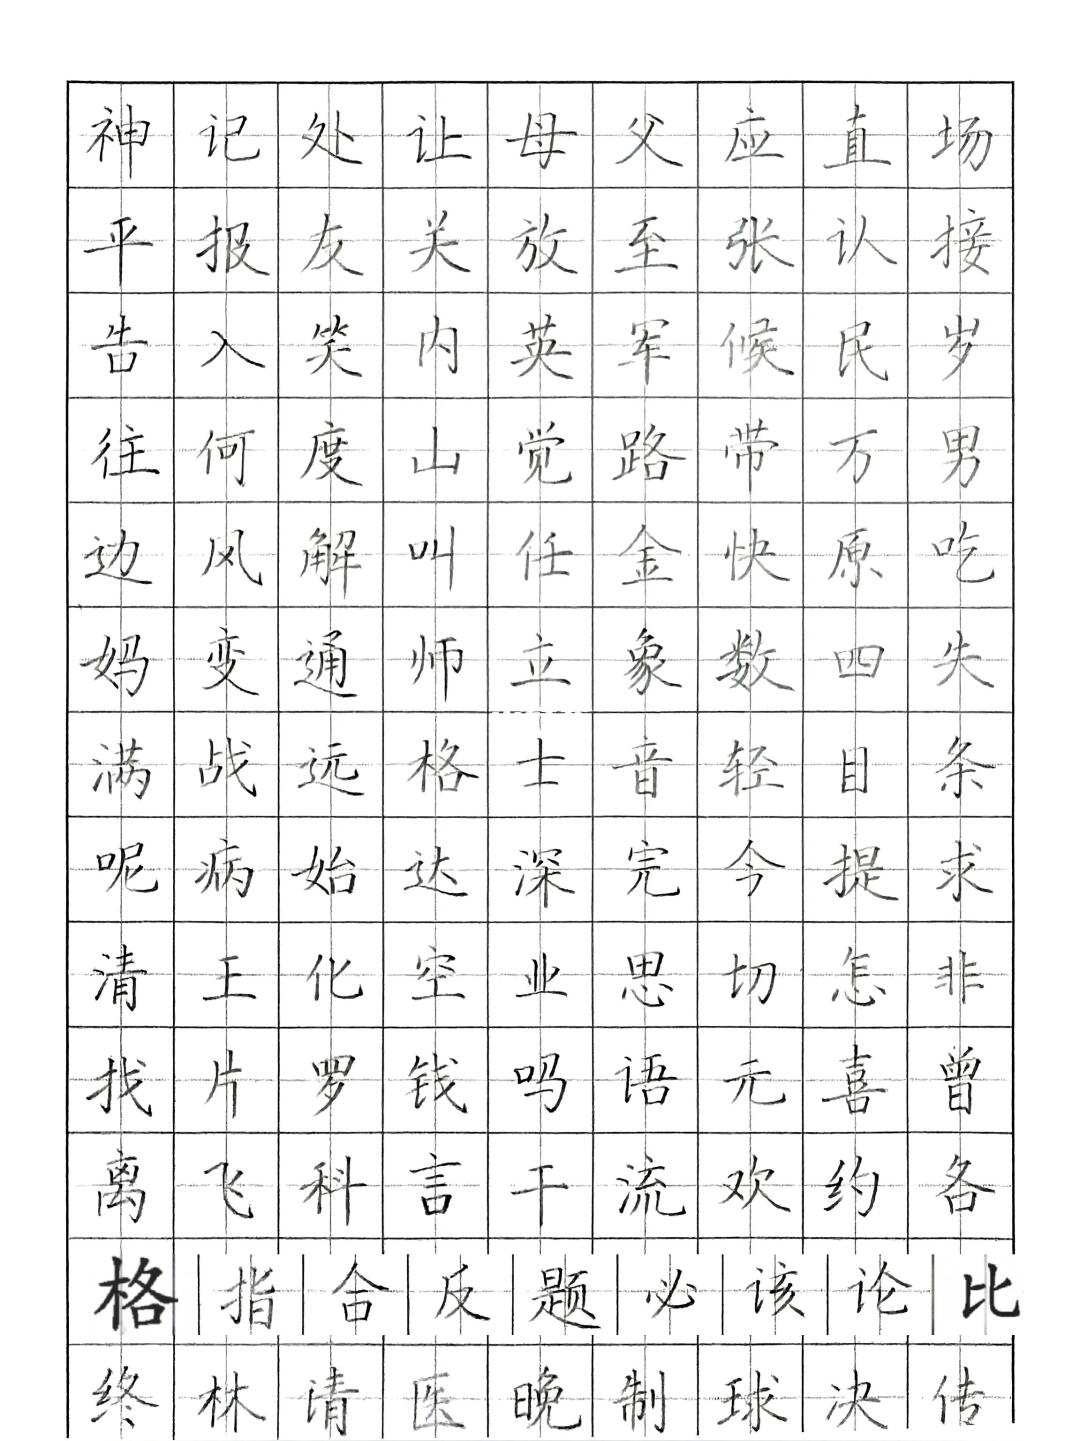 神记处让母父应直场
平报友关放至张认接
告入笑内英军候民岁
往何度山觉路带万男
边风解叫任金快原吃
妈变通师立象数四失
满战远格士音轻目条
呢病始达深完今提求
清王化空业思切怎非
找片罗钱吗语元喜曾
离飞科言干流欢约各
格指合反题必该论比
终林请医晚制球决传